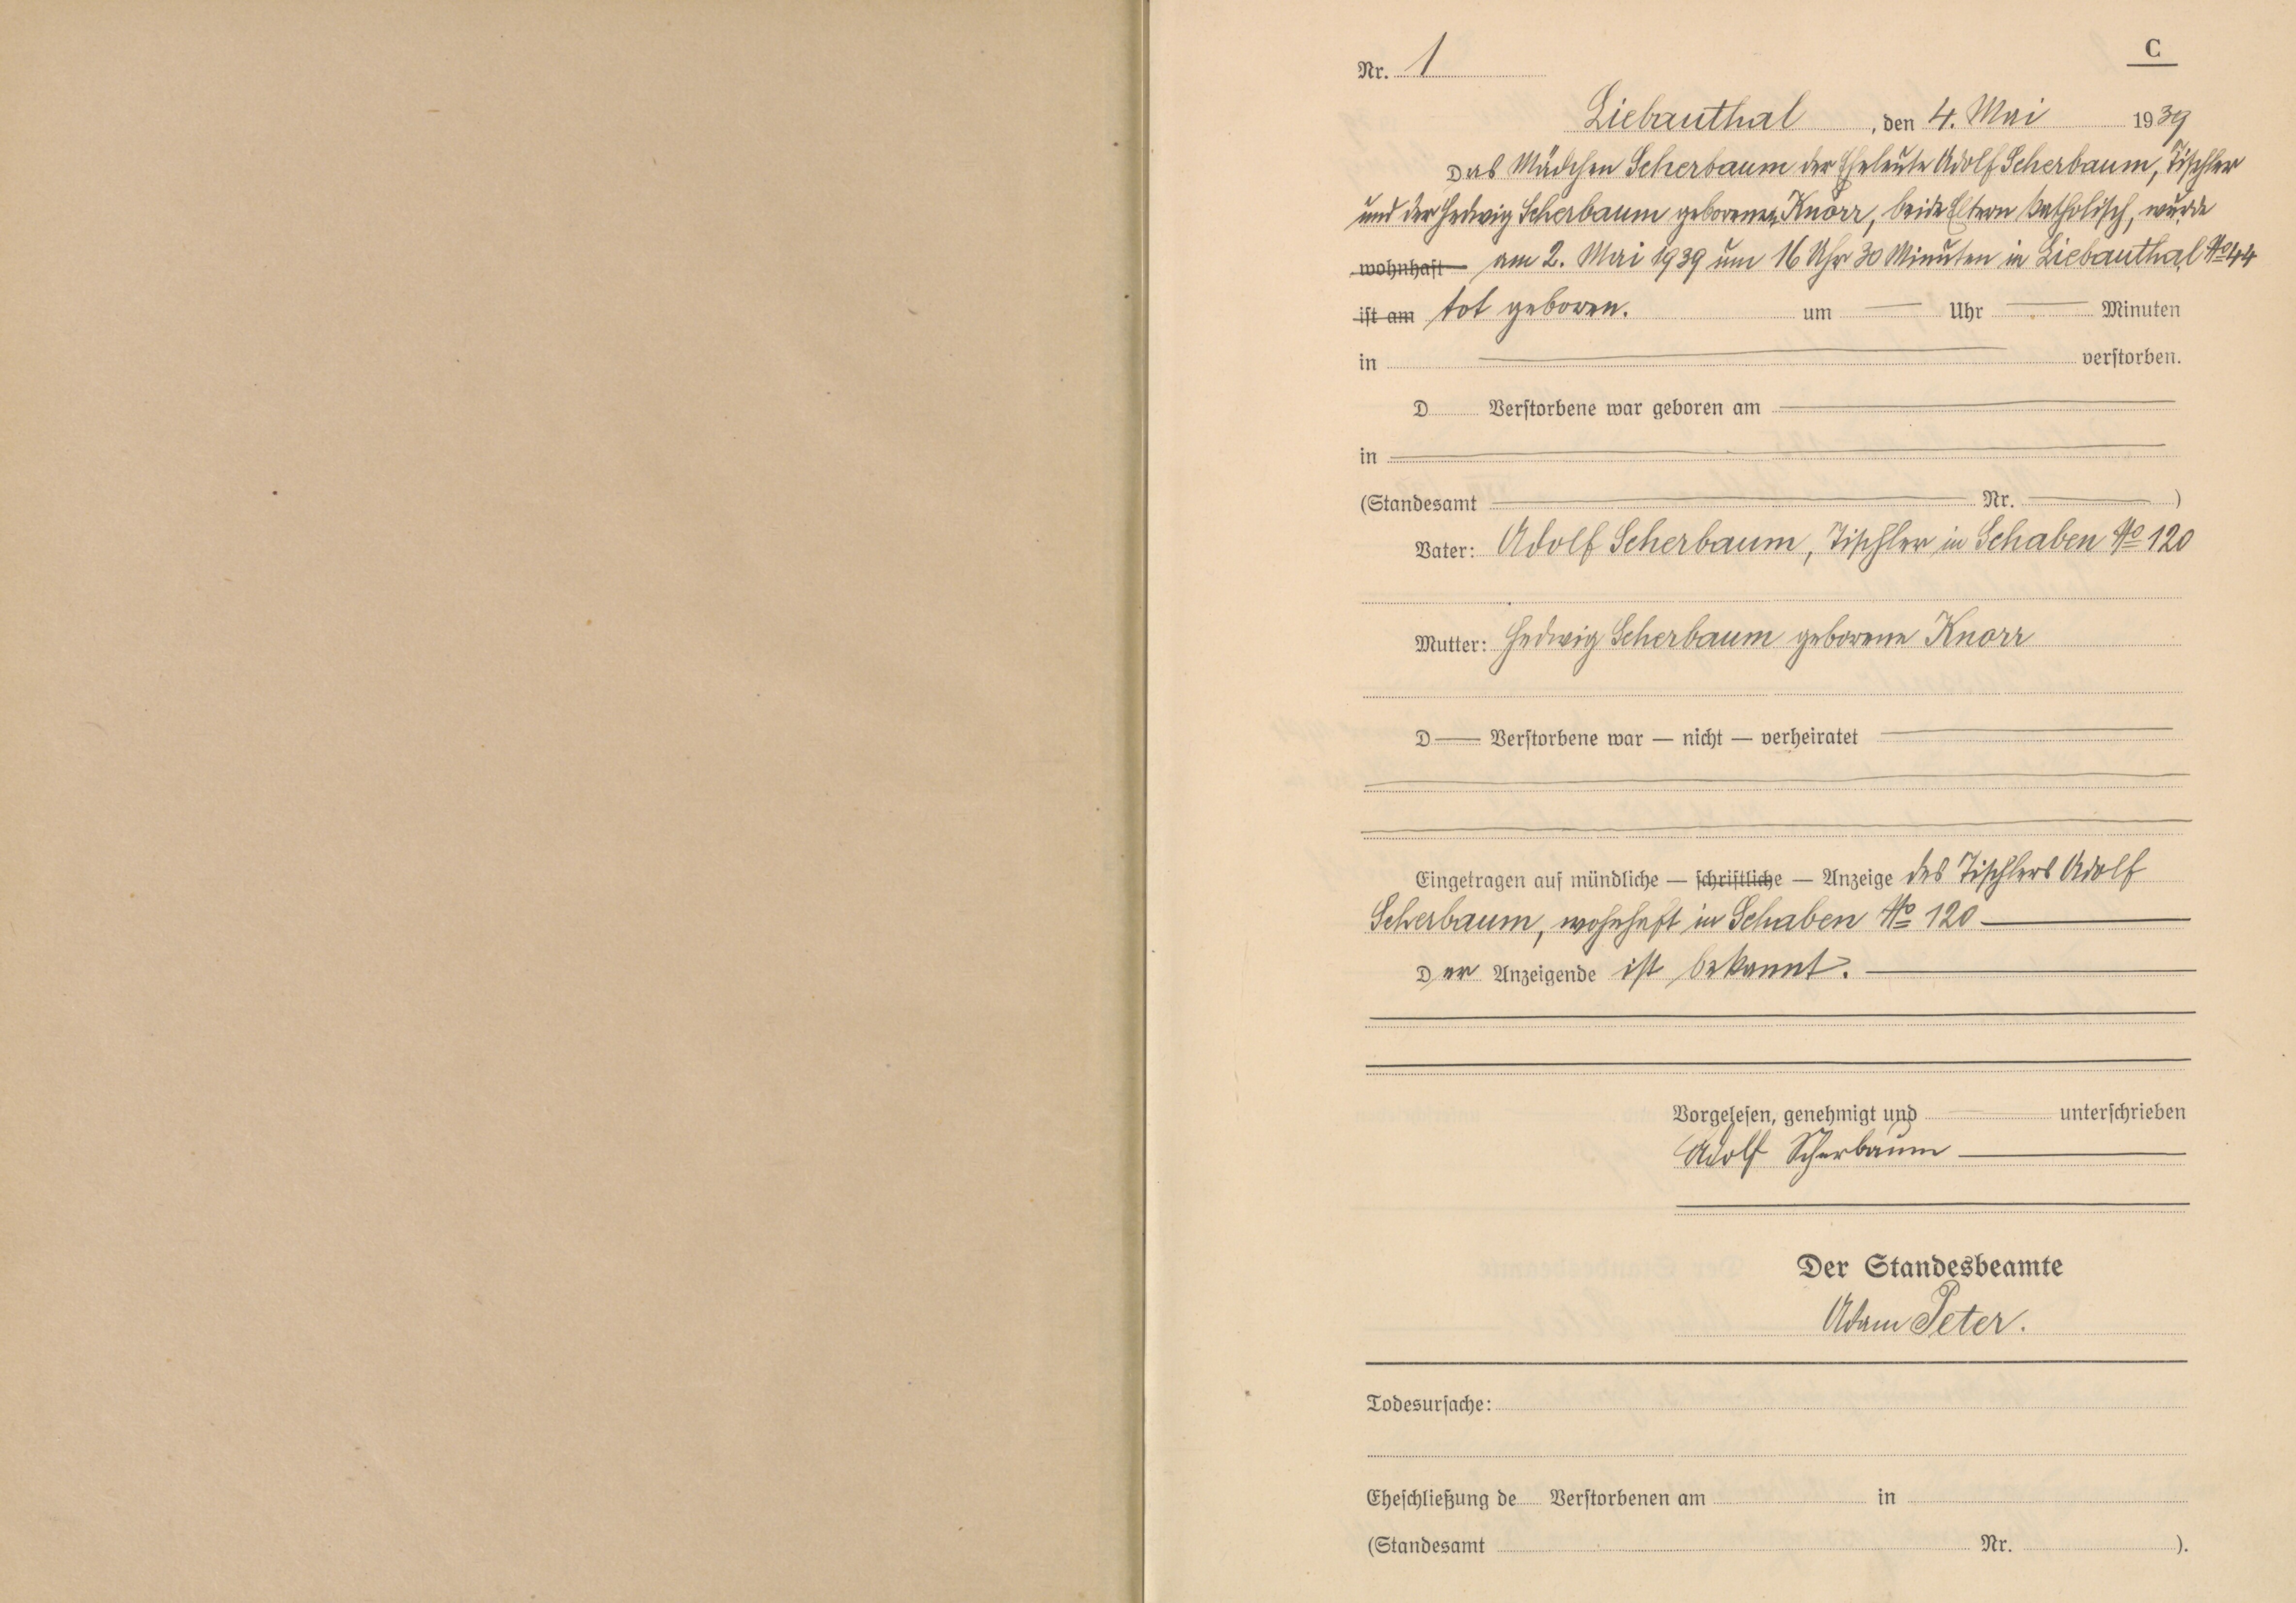 C
Nr. 1
Liebauthal, den 4. Mai 1939
Das Mädchen Scherbaum der Eheleute Adolf Scherbaum, Tischler
und der Hedwig Scherbaum geborenen Knorr, beide Eltern katholisch, wurde
wohnhaft am 2. Mai 1939 um 16 Uhr 30 Minuten in Liebauthal No 44
ist am tot geboren. um — Uhr — Minuten
in — verstorben.
D Verstorbene war geboren am —
in —
(Standesamt — Nr. — )
Vater: Adolf Scherbaum, Tischler in Schaben No 120
Mutter: Hedwig Scherbaum geborene Knorr
D — Verstorbene war — nicht — verheiratet —
Eingetragen auf mündliche — schriftliche — Anzeige des Tischlers Adolf
Scherbaum, wohnhaft in Schaben No 120 —
Der Anzeigende ist bekannt. —
Vorgelesen, genehmigt und — unterschrieben
Adolf Scherbaum —
Der Standesbeamte
Adam Peter.
Todesursache:
Eheschließung de Verstorbenen am in
(Standesamt Nr. ).